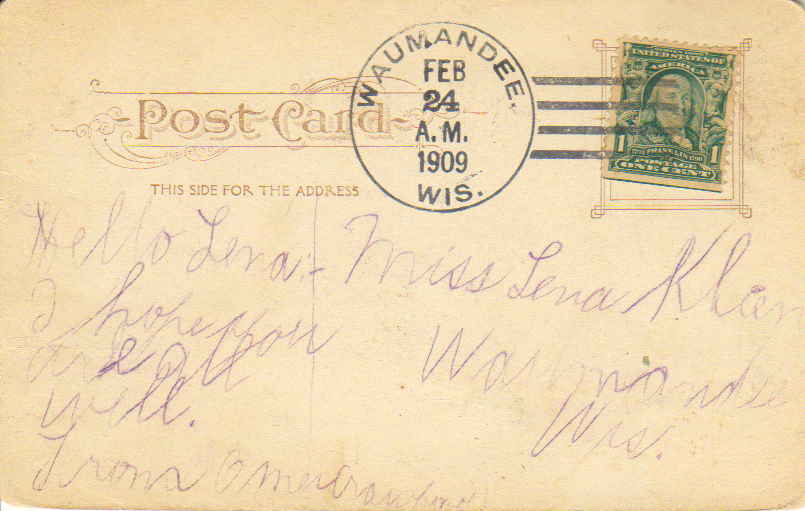 WAUMANDEE.
FEB
24
A.M.
1909
WIS.
UNITED STATES OF
AMERICA
FRANKLIN
POSTAGE
1 ONE CENT 1
Post Card
THIS SIDE FOR THE ADDRESS
Hello Lena:-
I hope you
are all
well.
From Omer Crawford
Miss Lena
Waumandee
Wis.